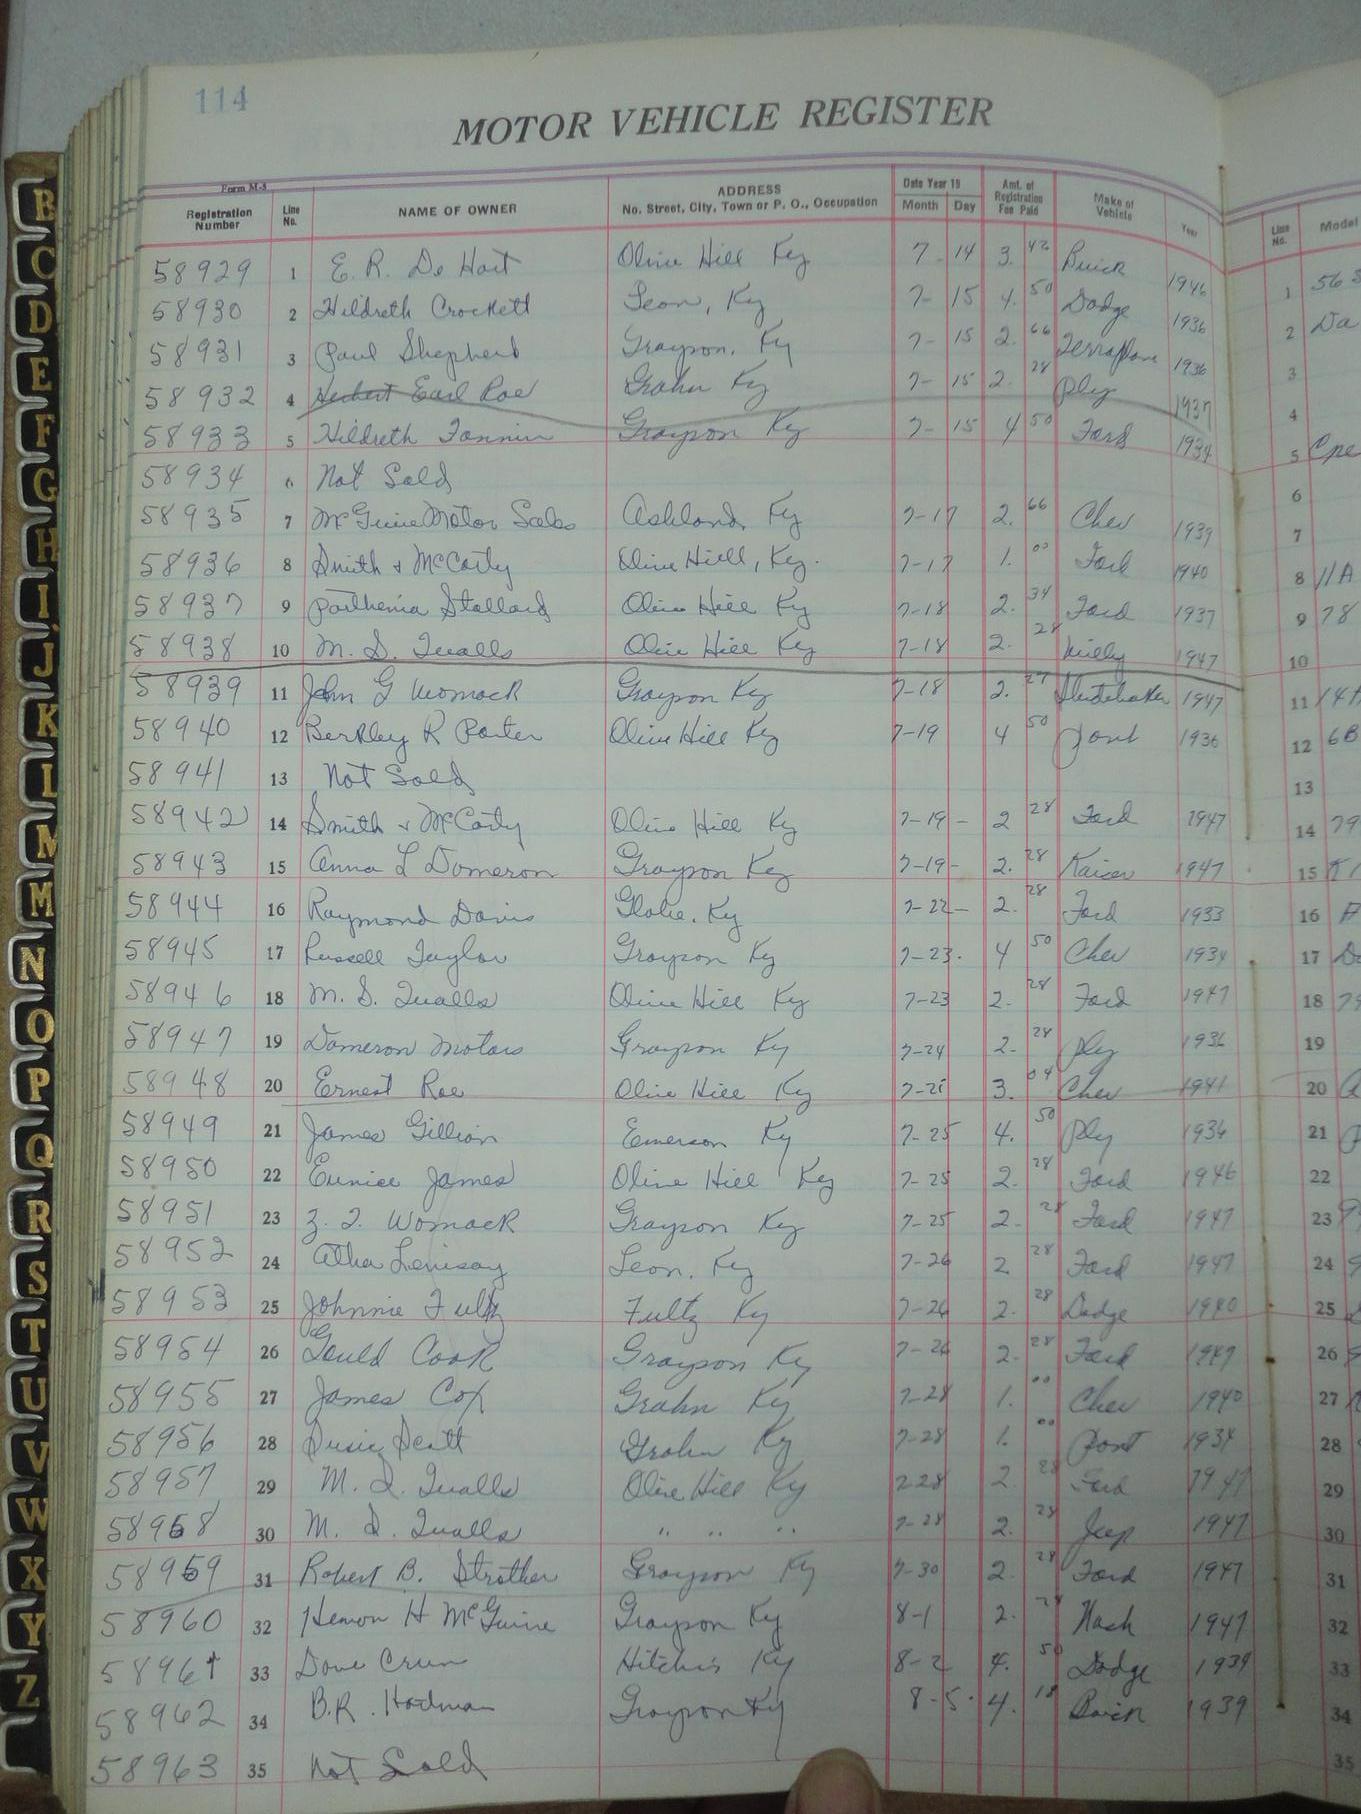 114
MOTOR VEHICLE REGISTER
Form M-8
Registration Number Line No. NAME OF OWNER ADDRESS No. Street, City, Town or P. O., Occupation Date Year 19 Month Day Amt. of Registration Fee Paid Make of Vehicle Year Line No. Model
58929 1 E. R. De Hart Olive Hill Ky 7- 14 3. 42 Buick 1946 1
58930 2 Hildreth Crockett Leon, Ky 7- 15 4. 50 Dodge 1936 2 Da
58931 3 Paul Shepherd Grayson, Ky 7- 15 2. 66 Terraplane 1936 3
58932 4 Herbert Earl Roe Grahn Ky 7- 15 2. 28 Ply 1937 4
58933 5 Hildreth Fannin Grayson Ky 7- 15 4 50 Ford 1934 5 Cpe
58934 6 Not Sold 6
58935 7 McGuire Motor Sales Ashland, Ky 7-17 2. 66 Chev 1939 7
58936 8 Smith & McCarty Olive Hill, Ky. 7-17 1. 00 Ford 1940 8 11A
58937 9 Parthenia Stallard Olive Hill Ky 7-18 2. 34 Ford 1937 9 78
58938 10 M. S. Qualls Olive Hill Ky 7-18 2. 28 1947 10
58939 11 John G Womack Grayson Ky 7-18 2. 27 Studebaker 1947 11
58940 12 Berkley R Porter Olive Hill Ky 7-19 4 50 Pont 1936 12 6B
58941 13 Not Sold 13
58942 14 Smith & McCarty Olive Hill Ky 7-19- 2 28 Ford 1947 14 79
58943 15 Anna L Dameron Grayson Ky 7-19- 2. 28 Kaiser 1947 15 K1
58944 16 Raymond Davis Globe, Ky 7-22- 2. 28 Ford 1933 16
58945 17 Russell Taylor Grayson Ky 7-23. 4 50 Chev 1934 17
58946 18 M. S. Qualls Olive Hill Ky 7-23 2. 28 Ford 1947 18
58947 19 Dameron Motors Grayson Ky 7-24 2. 28 Ply 1936 19
58948 20 Ernest Roe Olive Hill Ky 3. 04 Chev 1941 20
58949 21 James Gillian Emerson Ky 7-25 4. 50 Ply 1936 21
58950 22 Eunice James Olive Hill Ky 7-25 2. 28 Ford 1946 22
58951 23 Z. T. Womack Grayson Ky 7-25 2. 28 Ford 1947 23
58952 24 Leon, Ky 7-26 2 28 Ford 1947 24
58953 25 Johnnie Fultz Fultz Ky 7-26 2. 28 Dodge 1940 25
58954 26 Gould Cook Grayson Ky 7-26 2. 28 Ford 1947 26
58955 27 James Cox Grahn Ky 7-28 1. 00 Chev 1940 27
58956 28 Grahn Ky 7-28 1. 00 Pont 1934 28
58957 29 M. S. Qualls Olive Hill Ky 2 28 Ford 1947 29
58958 30 M. S. Qualls " " " 7-28 2. 28 Jeep 1947 30
58959 31 Robert B. Strother Grayson Ky 7-30 2. 28 Ford 1947 31
58960 32 Hemon H McGuire Grayson Ky 8-1 2. 28 Nash 1947 32
58961 33 Dave Crum Hitchis Ky 8-2 4. 50 Dodge 1939 33
58962 34 B.R. Grayson Ky 8-5. 4. 18 Buick 1939 34
58963 35 Not Sold 35
B
C
D
E
F
G
H
I
J
K
L
M
M
N
O
P
Q
R
S
T
U
V
W
X
Y
Z